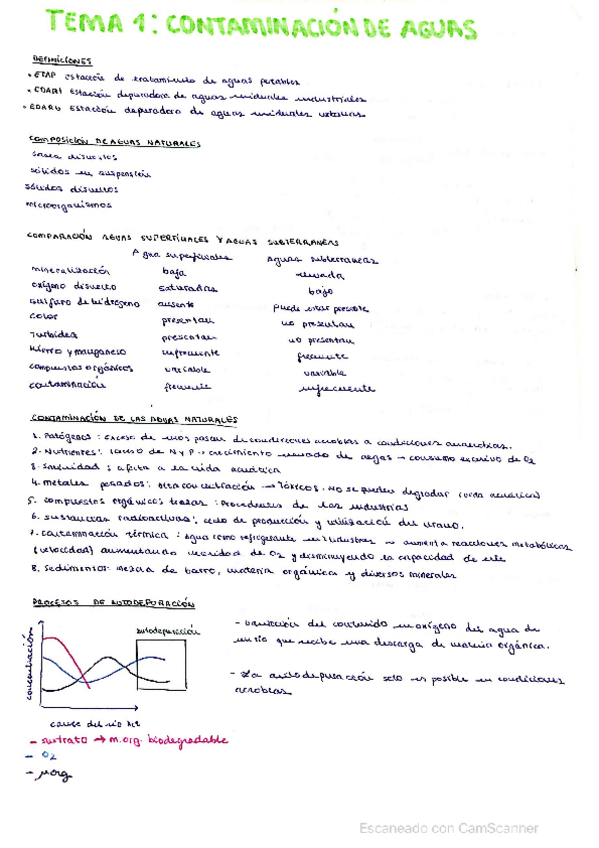 TEMA 1: CONTAMINACIÓN DE AGUAS
DEFINICIONES
• ETAP estación de tratamiento de aguas potables
• EDARI estación depuradora de aguas residuales industriales
• EDARU estación depuradora de aguas residuales urbanas
COMPOSICIÓN DE AGUAS NATURALES
Gases disueltos
sólidos en suspensión
sólidos disueltos
microorganismos
COMPARACIÓN AGUAS SUPERFICIALES Y AGUAS SUBTERRANEAS
Agua superficiales aguas subterraneas
mineralización baja elevada
oxígeno disuelto saturadas bajo
sulfuro de hidrogeno ausente puede estar presente
color presentan no presentan
Turbidez presentan no presentan
Hierro y manganeso infrecuente frecuente
compuestos orgánicos variable variable
contaminación frecuente infrecuente
CONTAMINACIÓN DE LAS AGUAS NATURALES
1. Patógenos: exceso de pasan de condiciones aerobias a condiciones anaerobias.
2. Nutrientes: exceso de N y P → crecimiento elevado de algas → consumo excesivo de O2
3. Salinidad: afecta a la vida acuática
4. metales pesados: alta concentración → tóxicos. No se pueden degradar (vida acuática)
5. compuestos orgánicos trazas: Procedentes de las industrias
6. sustancias radioactivas: ciclo de producción y utilización del urano.
7. contaminación térmica: agua como refrigerante en industrias → aumenta reacciones metabólicas
(velocidad) aumentando necesidad de O2 y disminuyendo la capacidad de este
8. Sedimentos: mezcla de barro, materia orgánica y diversos minerales
PROCESOS DE AUTODEPURACIÓN
concentración
autodepuración
cauce del río
- sustrato → m.org. biodegradable
- O2
- μorg
- variación del contenido en oxígeno del agua de
un río que recibe una descarga de materia orgánica.
- La autodepuración solo es posible en condiciones
aerobias
Escaneado con CamScanner